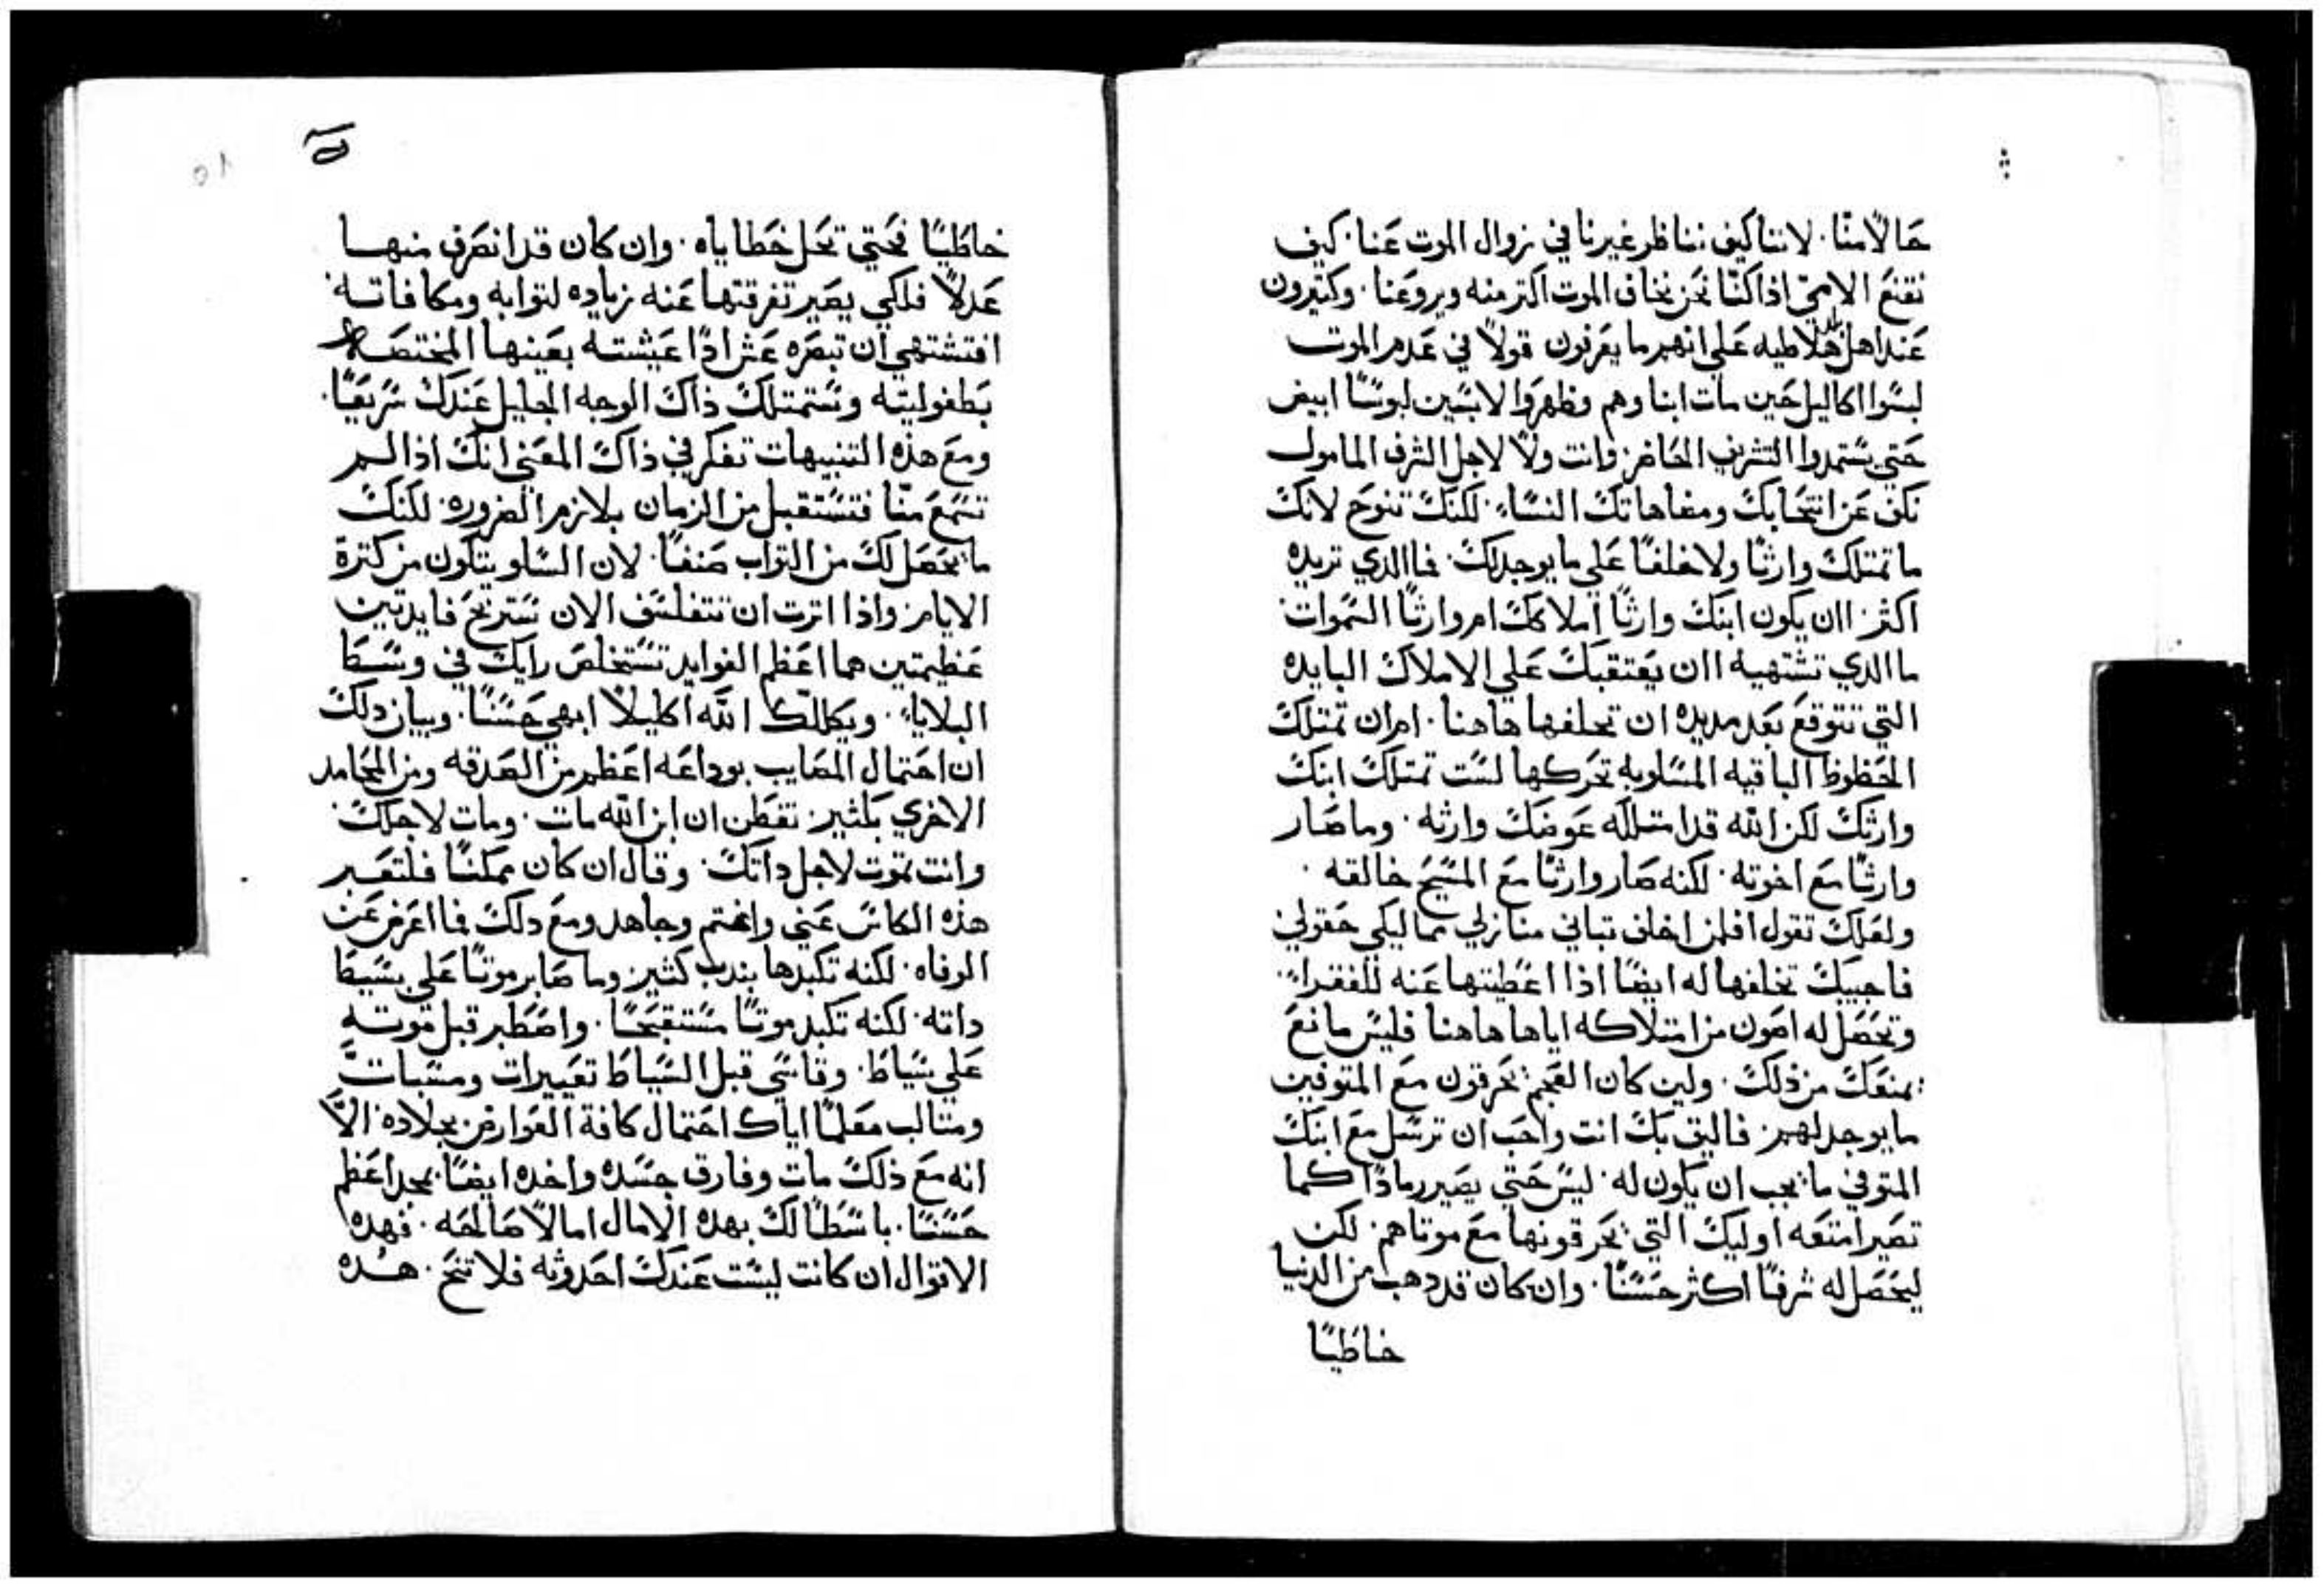 حالًا منّا. لاننا كيف نناظر غيرنا في زوال الموت عنا. كيف
نقنع الامي اذا كنّا نحن نخاف الموت اكتر منه ويروعنا. وكتيرون
عند اهل هلاطيه علي انهم ما يعرفون قولًا في عدم الموت
لبسوا اكاليل حين مات ابناوهم وظهروا لابسين لبوسًا ابيض
حتي يستمدوا التشريف الحاضر وانت ولا لاجل الشرف المامول
تكف عن انتحابك ومضاهاتك النساء. لكنك تنوح لانك
ما تمتلك وارثًا ولا خلفًا علي ما يوجد لك. فما الذي تريده
اكثر اان يكون ابنك وارثًا املاكك ام وارثًا السموات
ما الدي تشتهيه اان يعتقبك علي الاملاك البايده
التي تتوقع بعد مديده ان تخلفها هاهنا. ام ان تمتلك
الحظوظ الباقيه المساويه تحركها لست تمتلك ابنك
وارثك لكن الله قد امتلكه عوضك وارثه. وما صار
وارثًا مع اخوته. لكنه صار وارثًا مع المسيح خالقه.
ولعلك تقول افلمن اخلف تيابي منازلي مماليكي حقولي
فاجيبك تخلفها له ايضًا اذا اعطيتها عنه للفقراء
وتحصل له اصون من امتلاكه اياها هاهنا فليس مانع
يمنعك من ذلك. ولين كان العجم يحرقون مع المتوفين
ما يوجد لهم. فاليق بك انت واحب ان ترسل مع ابنك
المتوفي ما يجب ان يكون له. ليس حتي يصير رمادًا كما
تصير امتعه اوليك التي يحرقونها مع موتاهم. لكن
ليحصل له شرفًا اكثر حسنًا. وان كان قد دهب من الدنيا
خاطيًا
خاطيًا فحتي تحل خطاياه. وان كان قد انصرف منهـا
عدلًا فلكي يصير تفرقتها عنه زياده لتوابه ومكافاته
افتشتهي ان تبصره عش اذًا عيشته بعينها المختصه
بطفوليته وستمتلك ذاك الوجه الجليل عندك سريعًا.
ومع هذه التنبيهات تفكر في ذاك المعني انك اذا لـم
تسمع منّا فتستقبل من الزمان بلازم الضروره. لكنك
ما يحصل لك من التواب صنفًا. لان السلو يتكون من كترة
الايام. واذا اترت ان تتفلسف الان ستربح فايدتين
عظيمتين هما اعظم الفوايد تستخلص رايك في وسـط
البلاياء. ويكللك الله اكليلًا ابهي حسنًا. وبيان دلك
ان احتمال المصايب بوداعه اعظم من الصدقه ومن المحامد
الاخري بكثير. تفطن ان ابن الله مات. ومات لاجلك.
وانت تموت لاجل داتك. وقال ان كان ممكنًا فلتعبـر
هذه الكاس عني واغتم وجاهد ومع دلك فما اعرض عن
الوفاه. لكنه تكبدها بندب كثير. وما صابر موتًا علي بسيط
داته. لكنه تكبد موتًا مستقبحًا. واصطبر قبل موته
علي سياط. وقاسي قبل السياط تعييرات ومسبات
ومتالب معلمًا اياك احتمال كافة العوارض بجلاده. الاَّ
انه مع ذلك مات وفارق جسده واخده ايضًا بمجد اعظم
حسنًا. باسطًا لك بهده الامال امالًا صالحه. فهده
الاقوال ان كانت ليست عندك احدوثه فلا تنح. هـذه